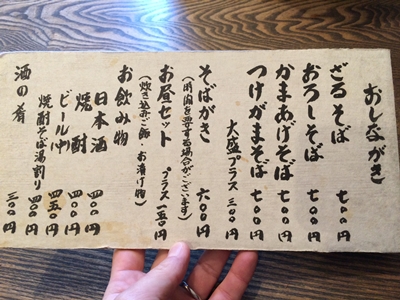 おしながき
ざるそば 七〇〇円
おろしそば 七〇〇円
かまあげそば 七〇〇円
つけがまそば 七〇〇円
大盛プラス 三〇〇円
そばがき 六〇〇円
(時間を要する場合がございます)
お昼セット プラス一五〇円
(炊き込みご飯・お漬け物)
お飲み物
日本酒 四〇〇円
焼酎 四〇〇円
ビール(中) 四五〇円
焼酎そば湯割り 四〇〇円
酒の肴 三〇〇円